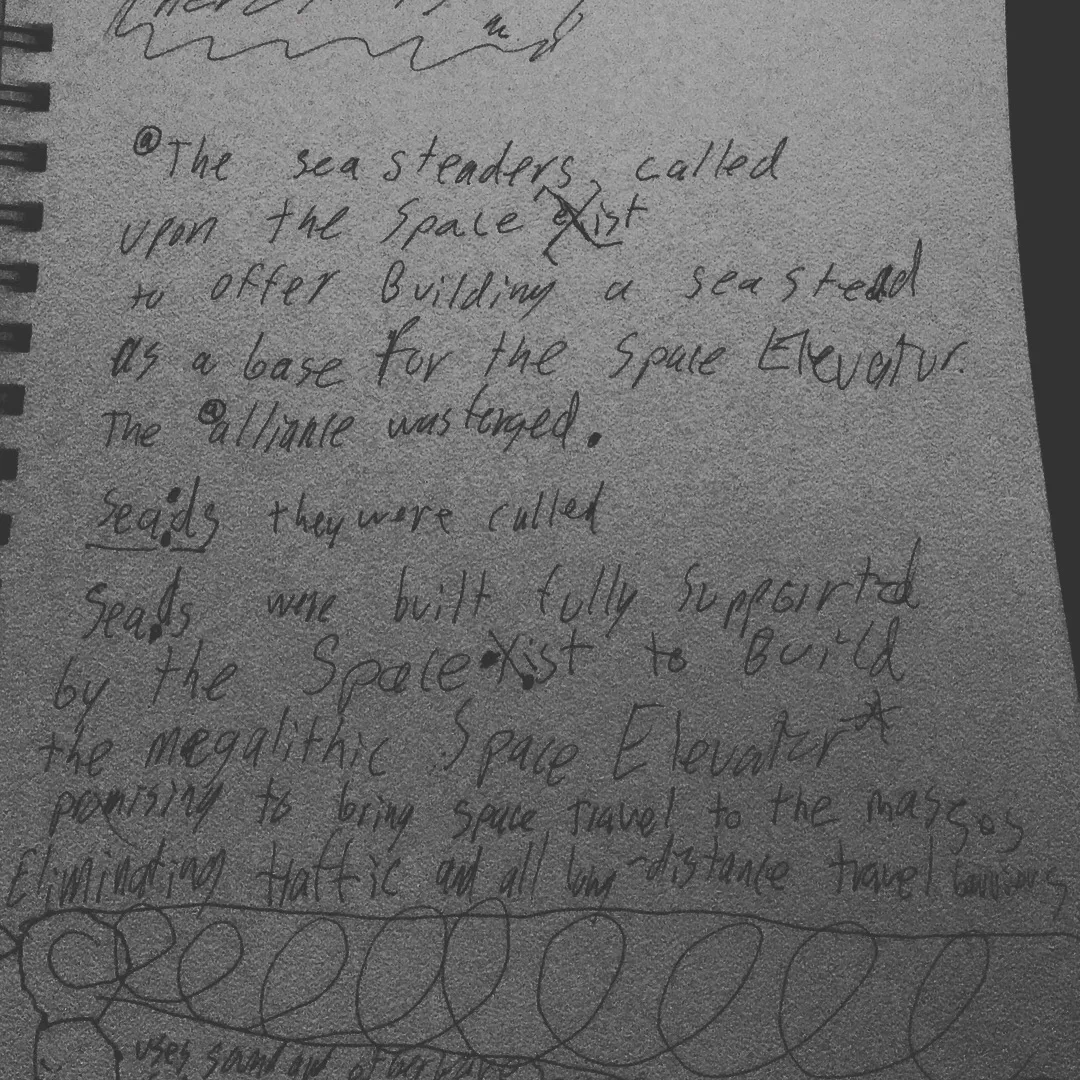 @The sea steaders, called
upon the Space Exist
to offer Building a sea stead
as a base for the Space Elevator.
The @alliance was forged.
Seads they were called
Seads were built fully supported
by the Space Xist to Build
the megalithic Space Elevator*
promising to bring space travel to the masses
Eliminating traffic and all long-distance travel
uses sound and other